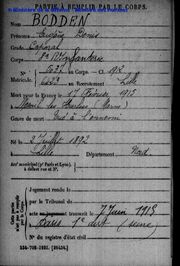 PARTIE À REMPLIR PAR LE CORPS.
Nom BODDEN
Prénoms
Grade Caporal
Corps 8e Rt d'Infanterie
N° au Corps. — Cl. 1912
Matricule. Lille
Mort pour la France le 17 Février 1915
à Mesnil les Hurlus (Marne)
Genre de mort Tué à l'ennemi
Né le 3 Juillet 1892
à Lille Département Nord
Arrt municipal (pr Paris et Lyon),
à défaut rue et N°.
Cette partie
n'est pas
à remplir
par le Corps.
Jugement rendu le
par le Tribunal de
acte ou jugement transcrit le 7 Juin 1918
à Paris 1er arrt (Seine)
N° du registre d'état civil